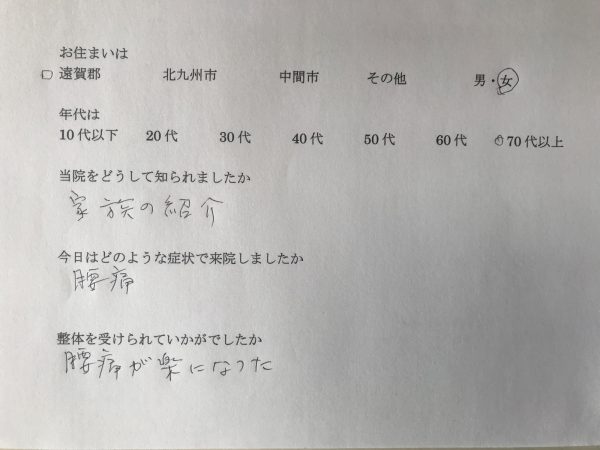 お住まいは
□ 遠賀郡 北九州市 中間市 その他 男・女
年代は
10代以下 20代 30代 40代 50代 60代 ○70代以上
当院をどうして知られましたか
家族の紹介
今日はどのような症状で来院しましたか
腰痛
整体を受けられていかがでしたか
腰痛が楽になった